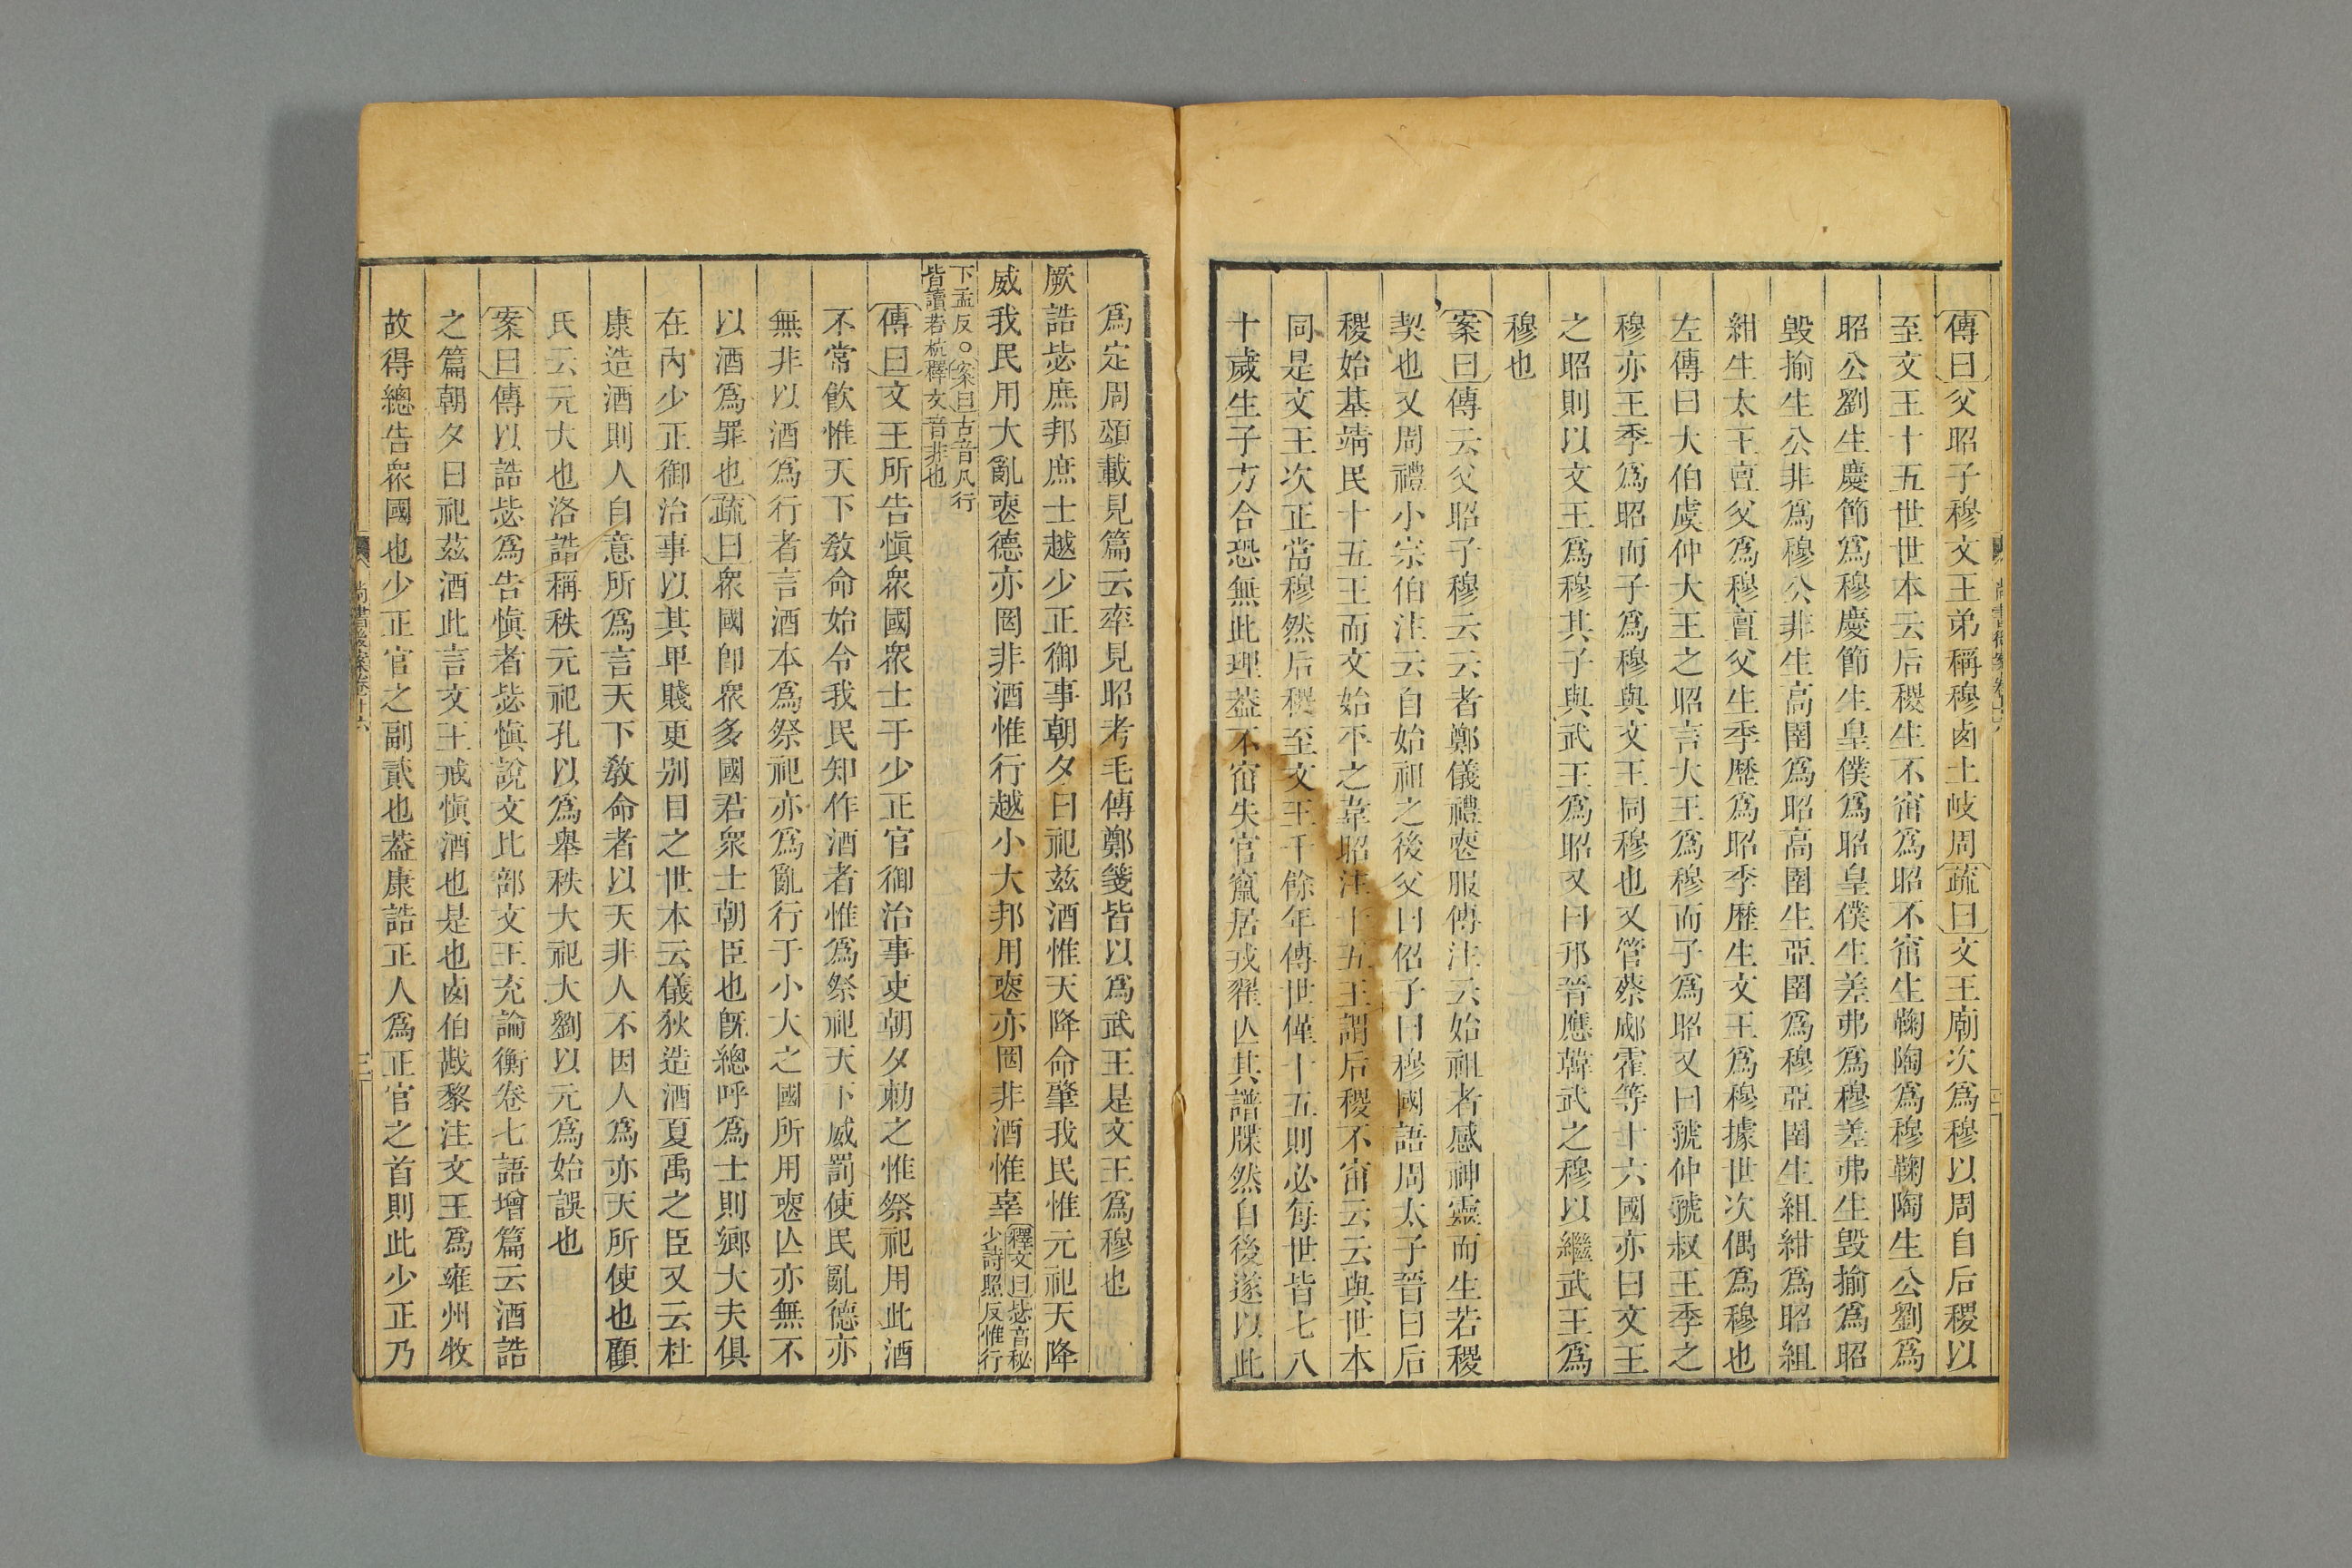 傳曰父昭子穆文王弟稱穆㢴土岐周疏曰文王廟次爲穆以周自后稷以
至文王十五世世本云后稷生不窋爲昭不窋生鞠陶爲穆鞠陶生公劉爲
昭公劉生慶節爲穆慶節生皇僕爲昭皇僕生差弗爲穆差弗生毀揄爲昭
毀揄生公非爲穆公非生高圉爲昭高圉生亞圉爲穆亞圉生組紺爲昭組
紺生太王亶父爲穆亶父生季歷爲昭季歷生文王爲穆據世次偶爲穆也
左傳曰大伯虞仲大王之昭言大王爲穆而子爲昭又曰虢仲虢叔王季之
穆亦王季爲昭而子爲穆與文王同穆也又管蔡郕霍等十六國亦曰文王
之昭則以文王爲穆其子與武王爲昭又曰邘晉應韓武之穆以繼武王爲
穆也
案曰傳云父昭子穆云云者鄭儀禮喪服傳注云始祖者感神靈而生若稷
契也又周禮小宗伯注云自始祖之後父曰佋子曰穆國語周太子晉曰后
稷始基靖民十五王而文始平之韋昭注十五王謂后稷不窋云云與世本
同是文王次正當穆然后稷至文王千餘年傳世僅十五則必每世皆七八
十歲生子方合恐無此理葢不窋失官竄居戎翟亾其譜牒然自後遂以此
爲定周頌載見篇云率見昭考毛傳鄭箋皆以爲武王是文王爲穆也
厥誥毖庶邦庶士越少正御事朝夕曰祀兹酒惟天降命肇我民惟元祀天降
威我民用大亂喪德亦罔非酒惟行越小大邦用喪亦罔非酒惟辜釋文曰毖音秘
少詩照反惟行
下孟反○案曰古音凡行
皆讀若杭釋文音非也
傳曰文王所告愼衆國衆士于少正官御治事吏朝夕勑之惟祭祀用此酒
不常飮惟天下敎命始令我民知作酒者惟爲祭祀天下威罰使民亂德亦
無非以酒爲行者言酒本爲祭祀亦爲亂行于小大之國所用喪亾亦無不
以酒爲罪也疏曰衆國卽衆多國君衆士朝臣也旣總呼爲士則卿大夫俱
在內少正御治事以其卑賤更别目之世本云儀狄造酒夏禹之臣又云杜
康造酒則人自意所爲言天下敎命者以天非人不因人爲亦天所使也顧
氏云元大也洛誥稱秩元祀孔以爲舉秩大祀大劉以元爲始誤也
案曰傳以誥毖爲告愼者毖愼說文比部文王充論衡卷七語增篇云酒誥
之篇朝夕曰祀茲酒此言文王戒愼酒也是也㢴伯戡黎注文王爲雍州牧
故得總告衆國也少正官之副貳也葢康誥正人爲正官之首則此少正乃
尚書後案卷十六
三